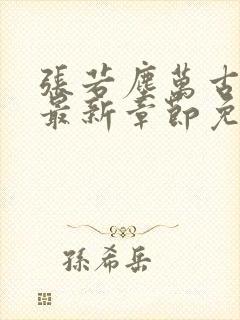 張若塵萬古
最新章節免
孫希岳